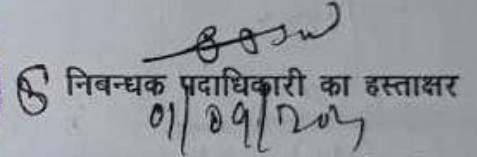 निबन्धक पदाधिकारी का हस्ताक्षर
01/09/